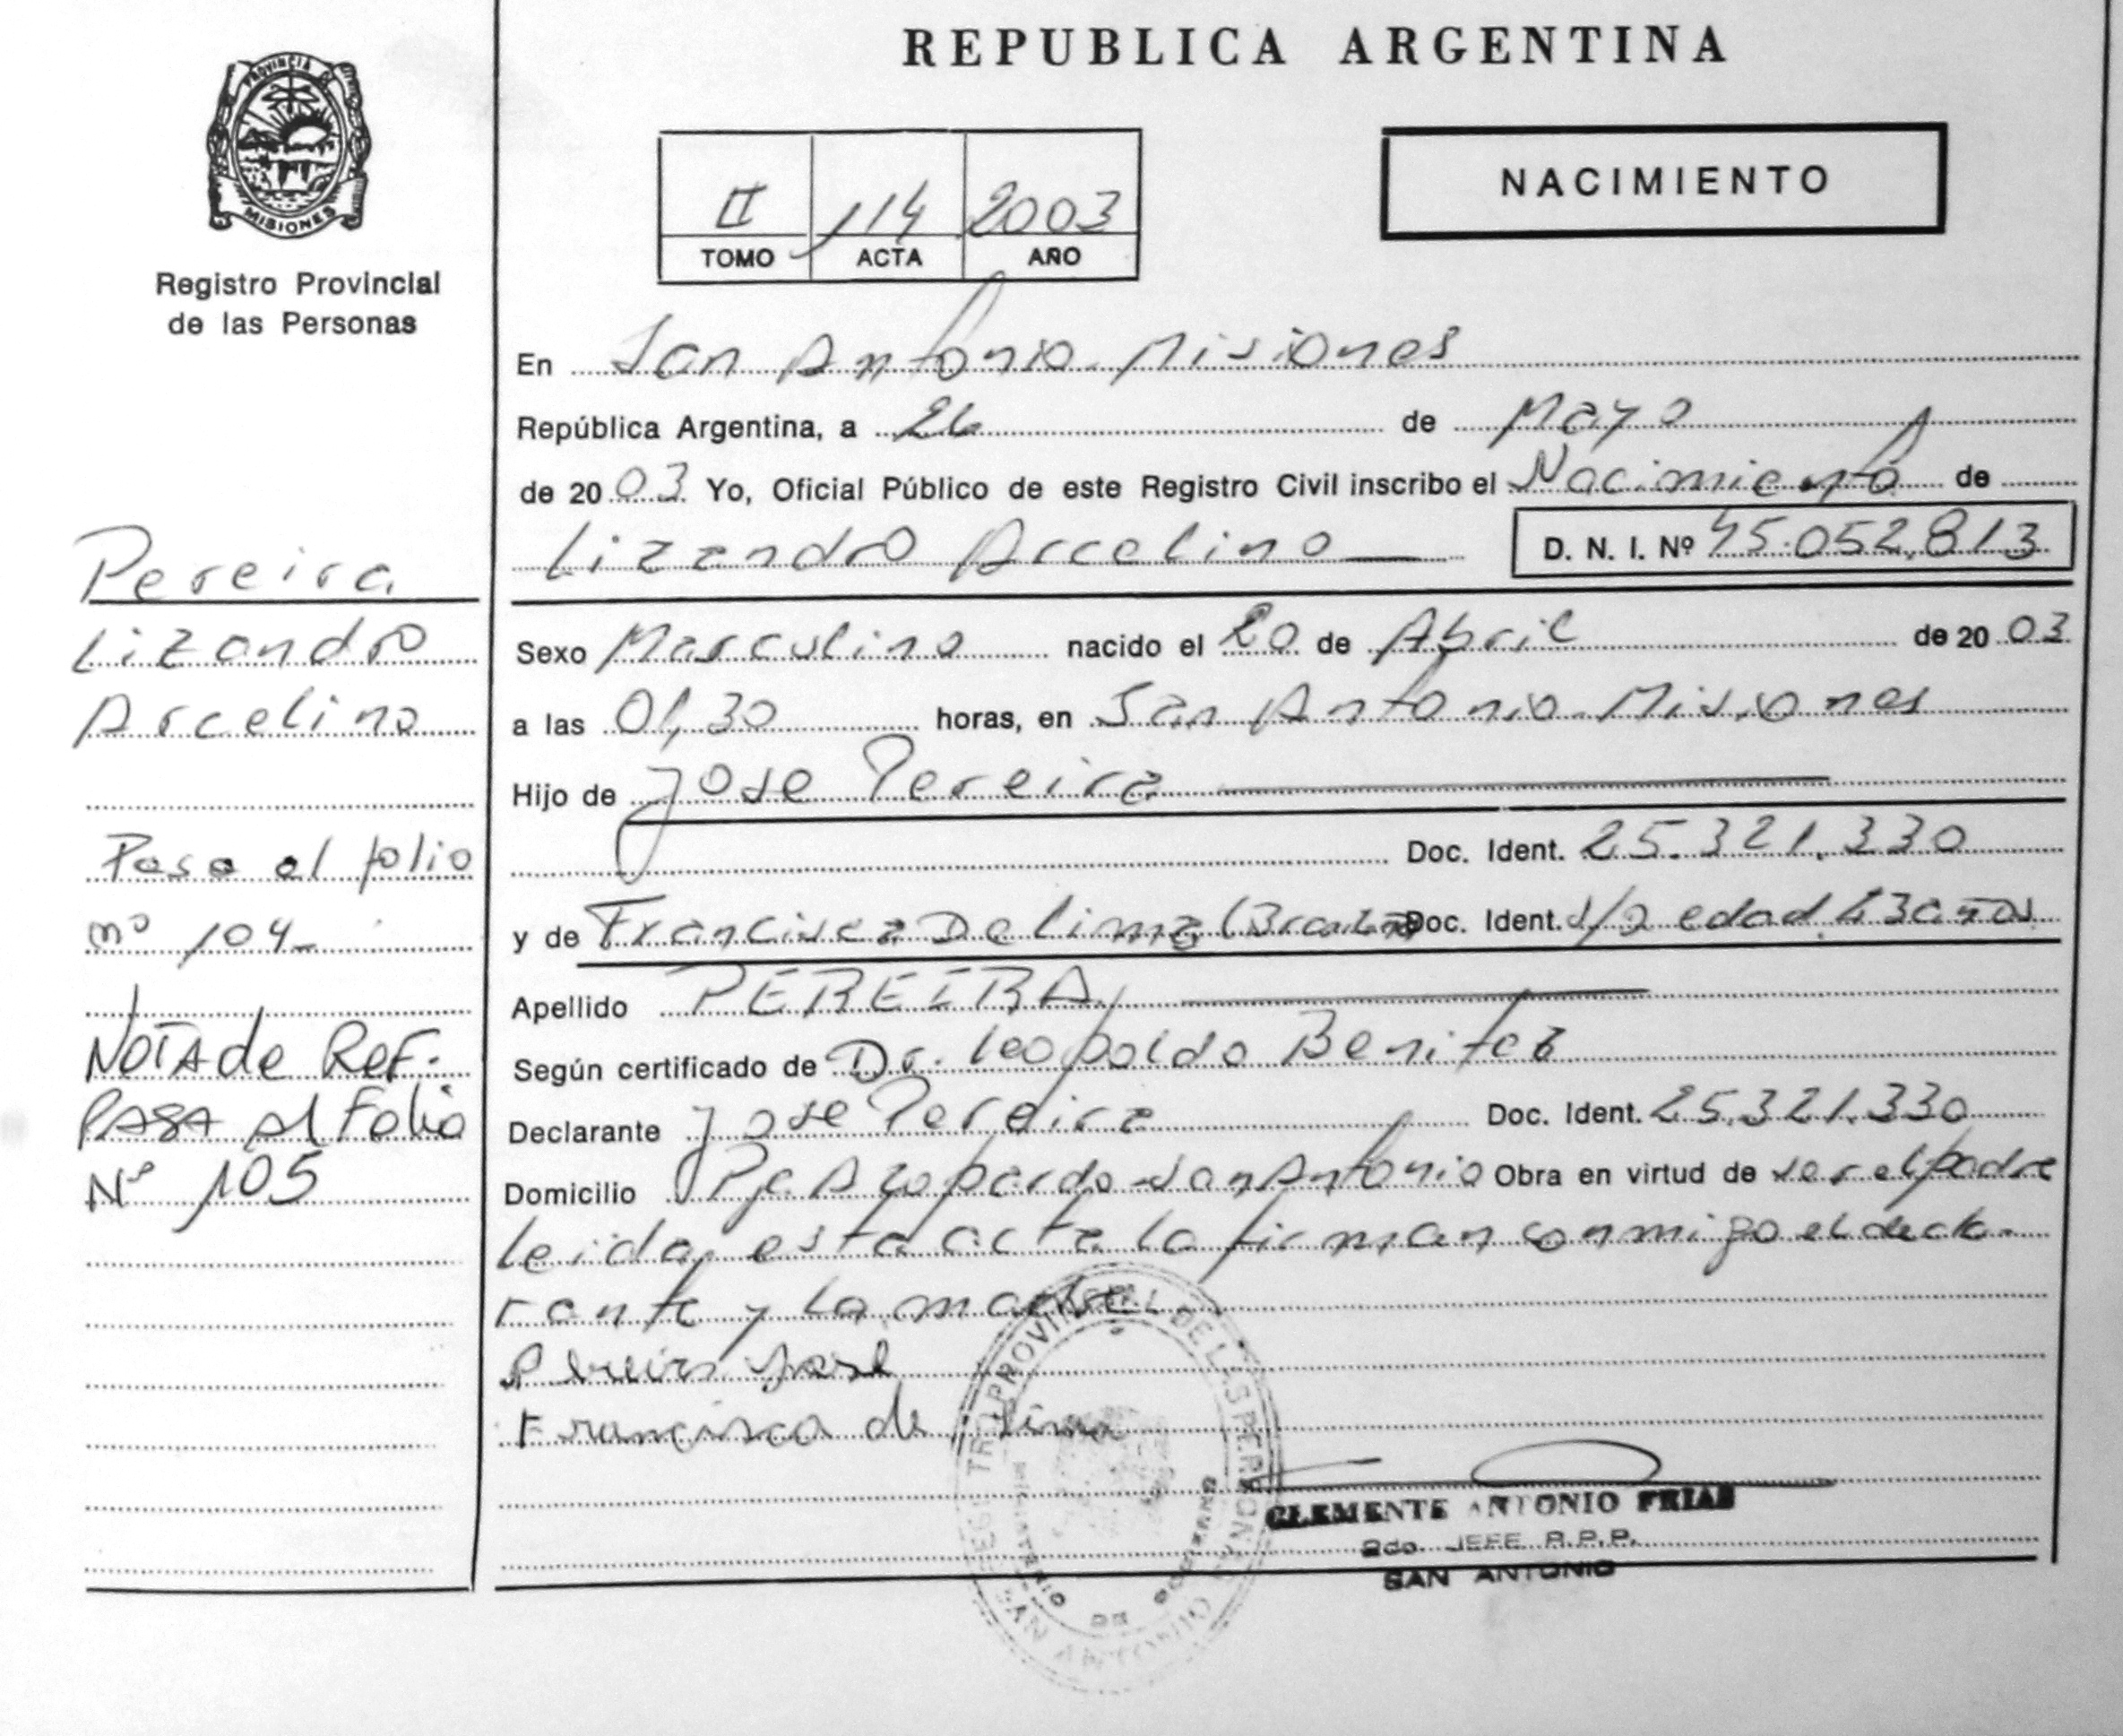 REPUBLICA ARGENTINA
PROVINCIA DE
MISIONES
Registro Provincial
de las Personas
II 114 2003
TOMO ACTA AÑO
NACIMIENTO
En San Antonio - Misiones
República Argentina, a 26 de Mayo
de 2003 Yo, Oficial Público de este Registro Civil inscribo el Nacimiento de
Lizandro Arcelino D. N. I. Nº 45.052.813
Sexo Masculino nacido el 20 de Abril de 2003
a las 01,30 horas, en San Antonio - Misiones
Hijo de Jose Pereira
Doc. Ident. 25.321.330
y de Francisca De lima Doc. Ident. edad años
Apellido PEREIRA
Según certificado de Dr. Leopoldo Benitez
Declarante Jose Pereira Doc. Ident. 25.321.330
Domicilio Pje Azopardo - San Antonio Obra en virtud de ser el padre
leida esta acta la firman conmigo el decla-
rante y la madre
Pereira Jose
Francisca de lima
Pereira
Lizandro
Arcelino
Pasa al folio
nº 104
NOTA de REF.
PASA Al Folio
Nº 105
PROVINCIAL DE LAS PERSONAS
MINISTERIO DE GOBIERNO
SAN ANTONIO
CLEMENTE ANTONIO FRIAS
2do. JEFE R.P.P.
SAN ANTONIO